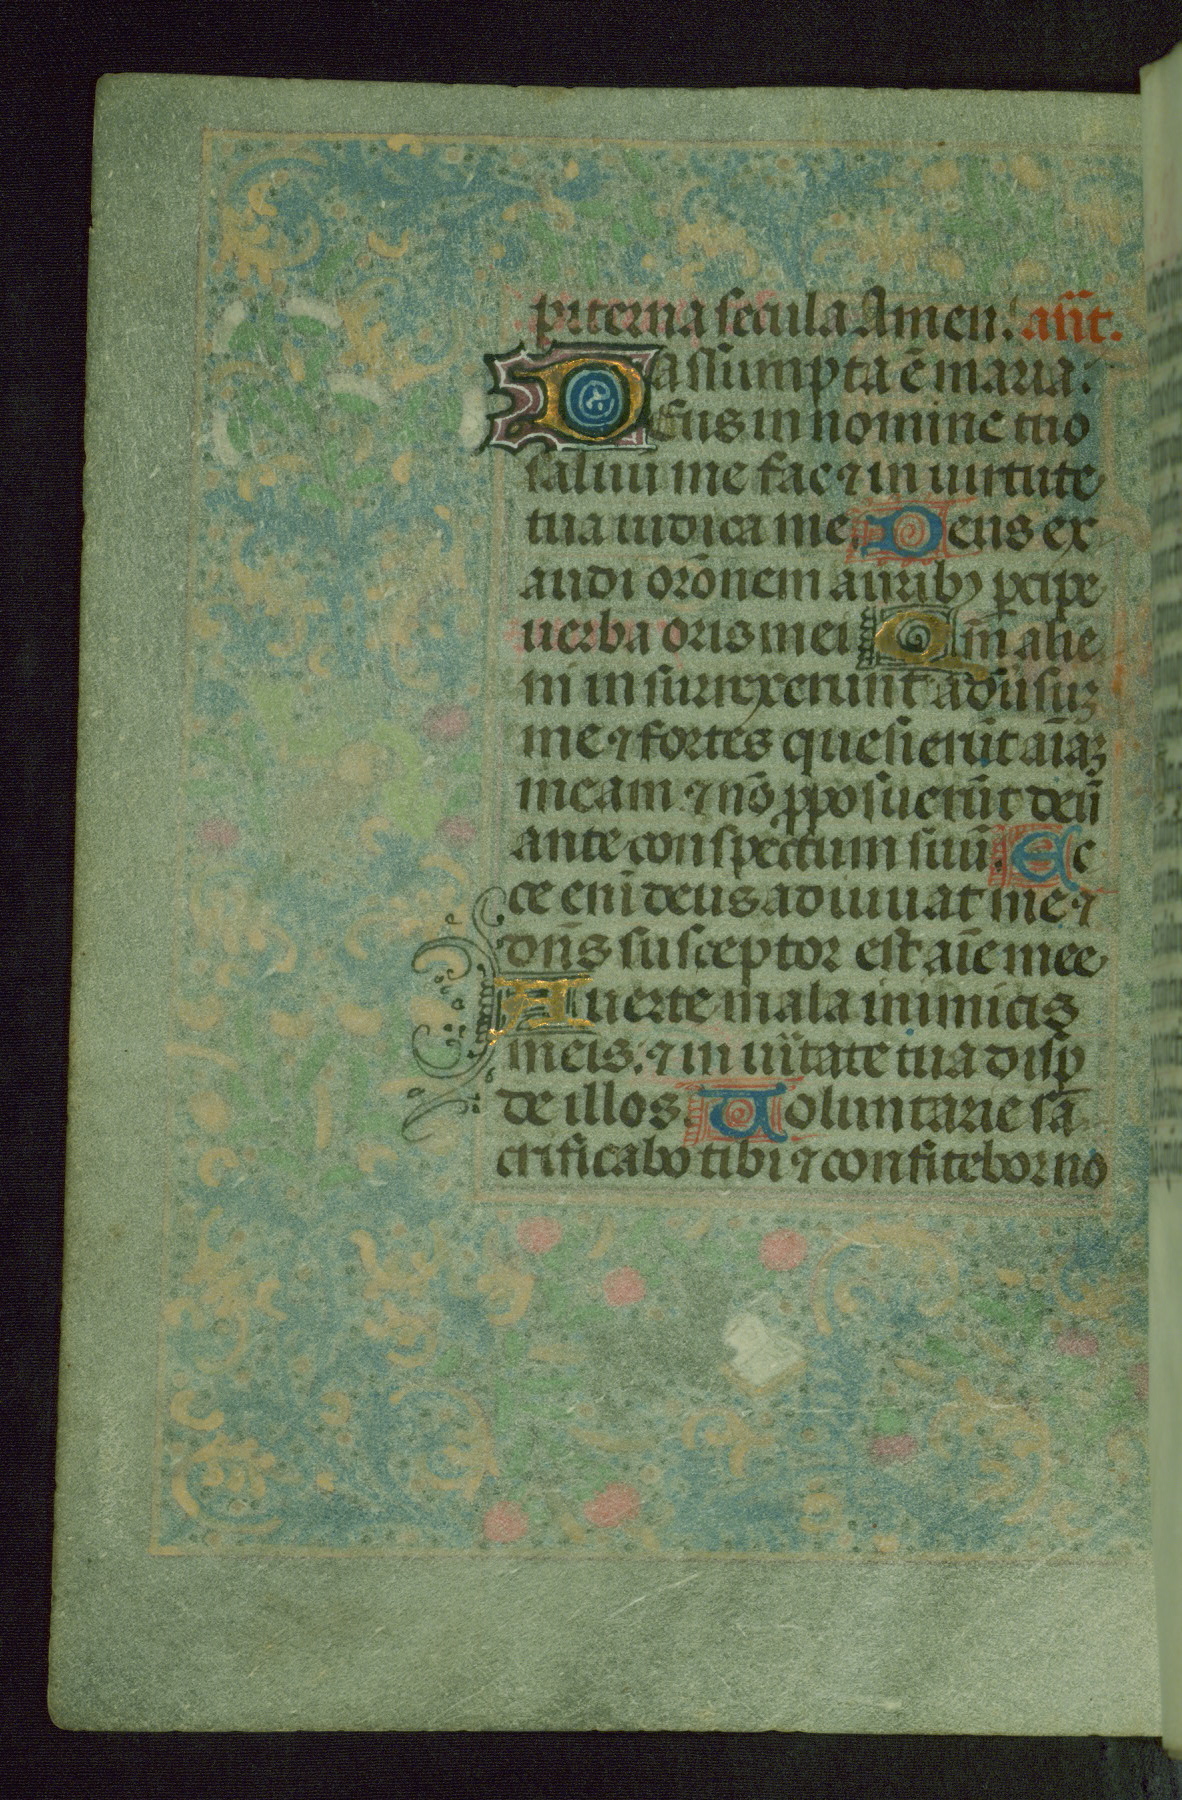 piterna secula Amen. añt.
assumpta ē maria.
Deus in nomine tuo
saluu me fac ⁊ in uirtute
tua iudica me. Deus ex
audi orōnem auribꝯ ꝑcipe
uerba oris mei Qm̄ alie
ni in surrexerunt aduᷤsuꝫ
me ⁊ fortes quesierūt aīaꝫ
meam ⁊ nō ꝓposuerūt deū
ante conspectum suū. Ec
ce enī deus adiuuat me ⁊
dn̄s susceptor est aīe mee
Auerte mala inimicis
meis. ⁊ in uītate tua disꝑ
de illos. Uoluntarie sā
crificabo tibi ⁊ confitebor no